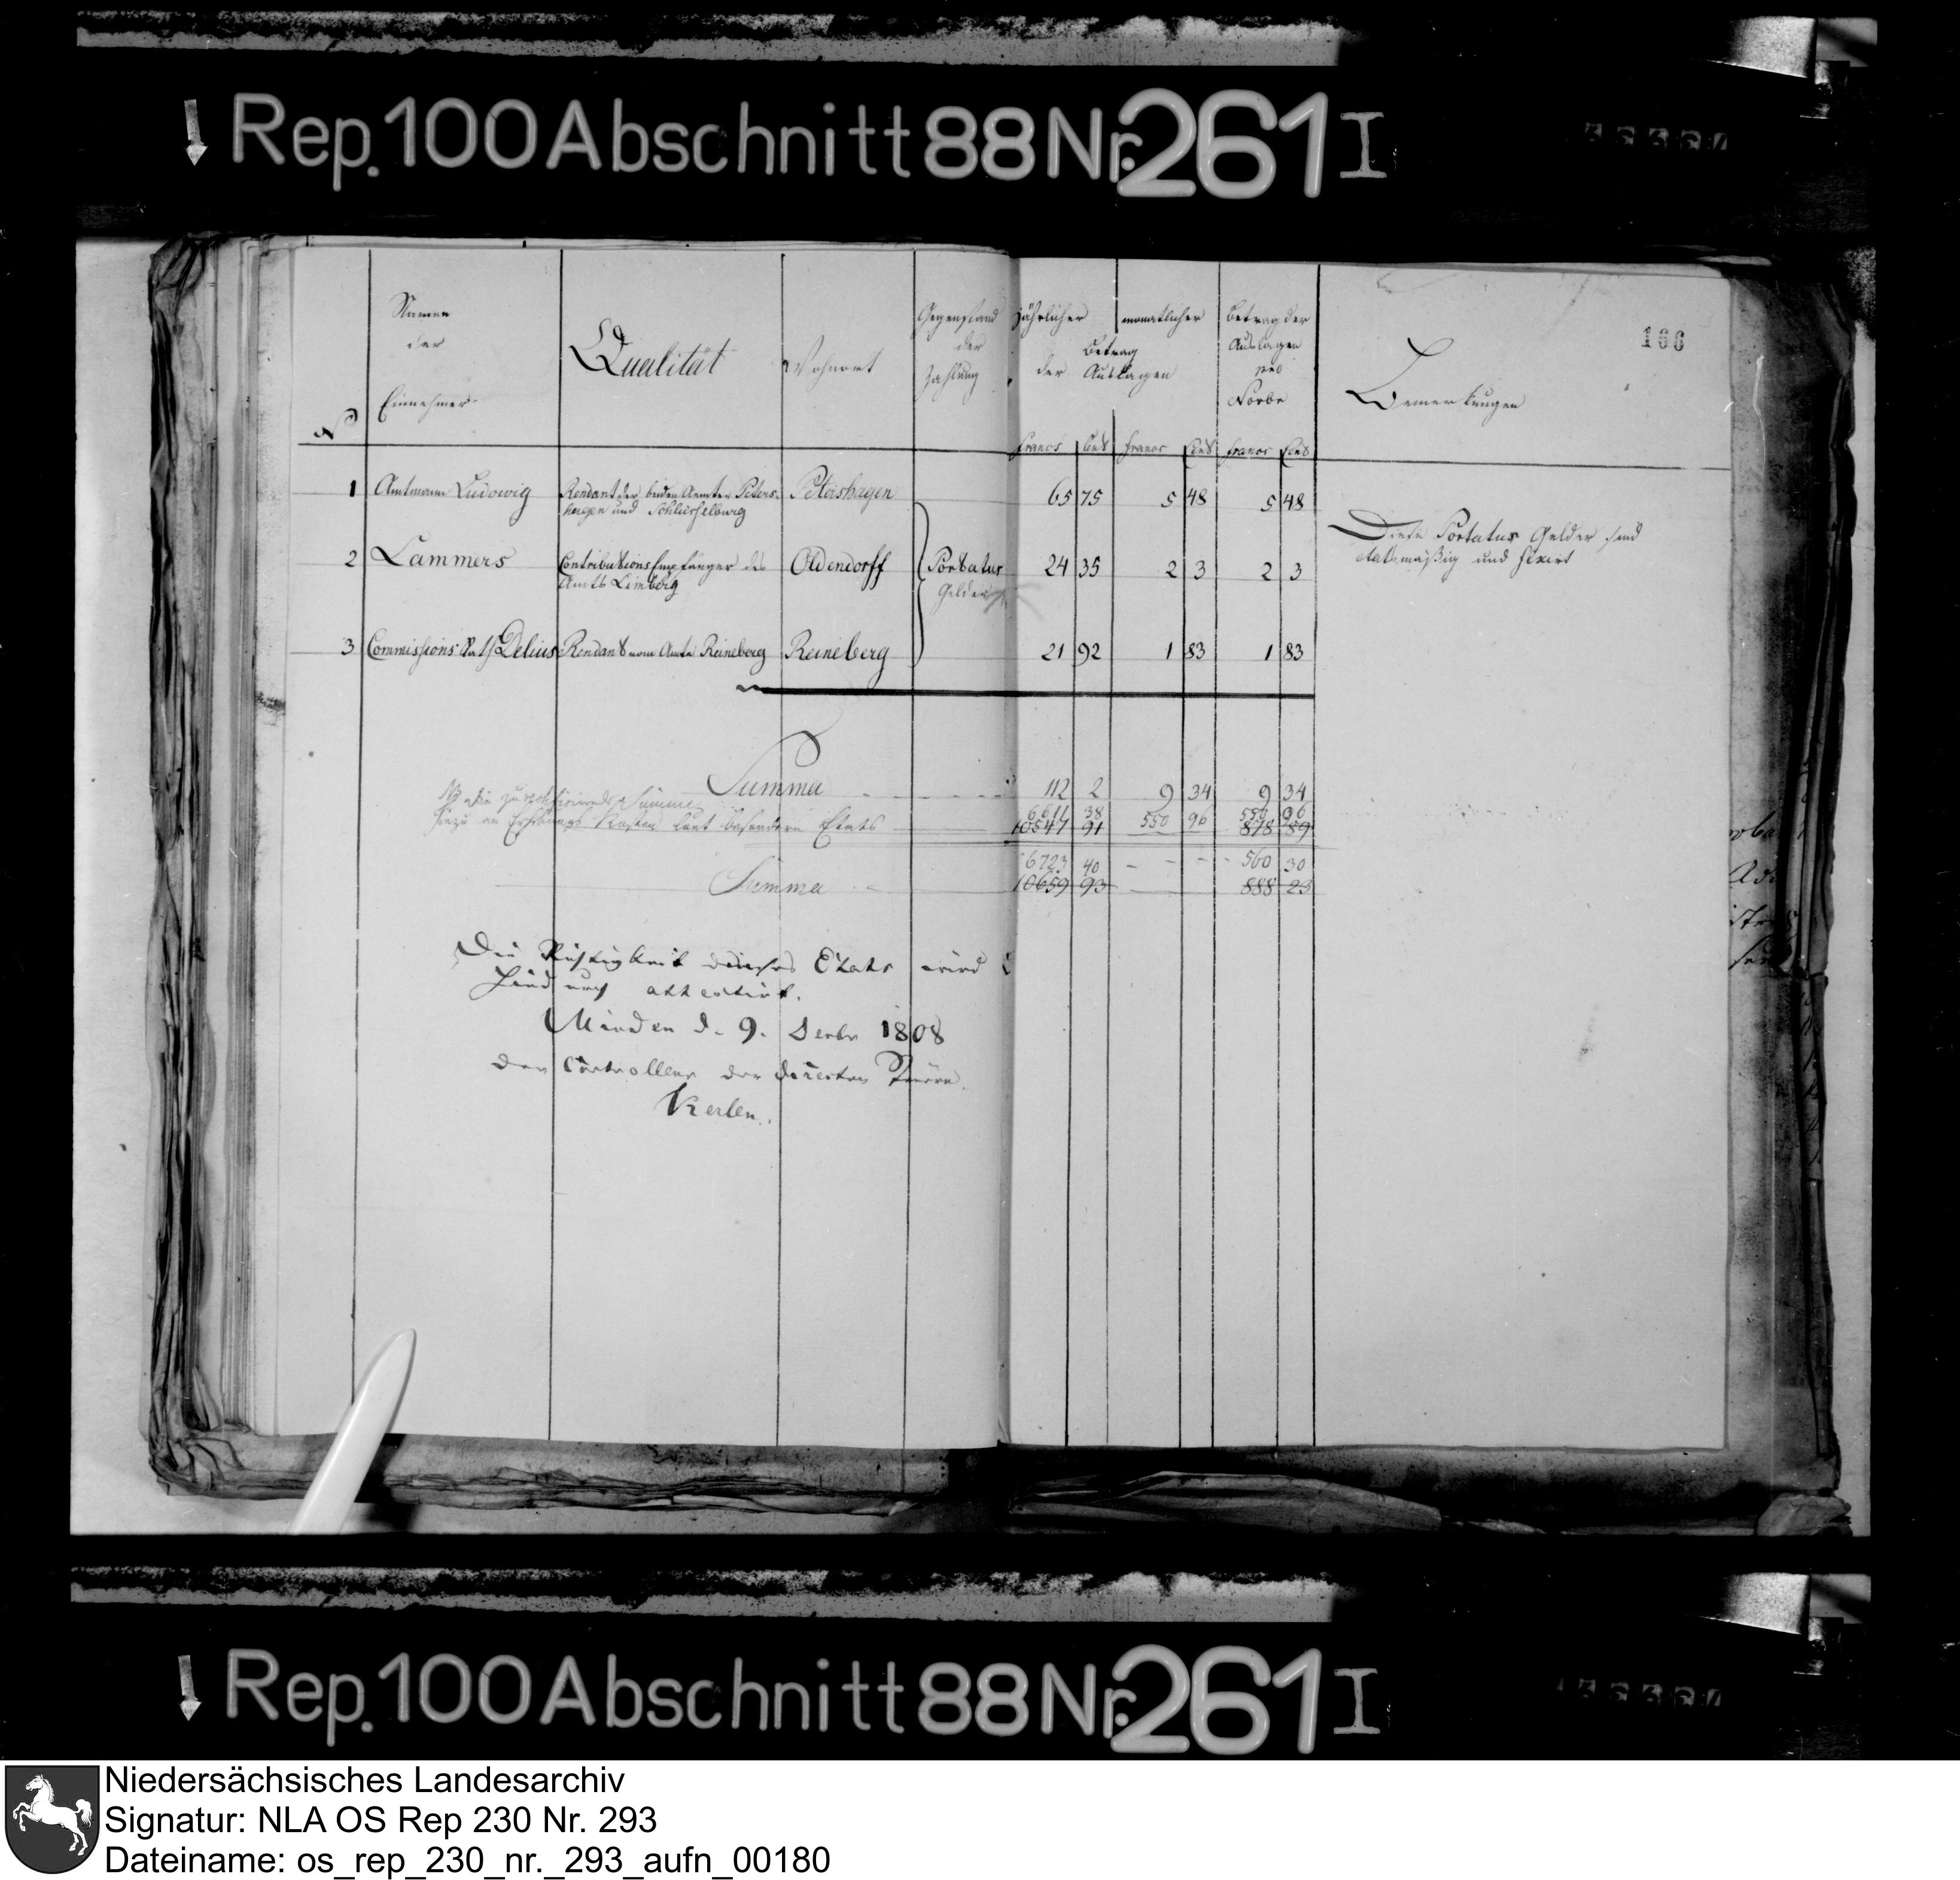 Rep. 100 Abschnitt 88 Nr. 261 I
166
No
Namen der Einnehmer
Qualität
Wohnort
Gegenstand der Zahlung
jährlicher monatlicher
Betrag der Auslagen
Betrag der Auslagen pro Novbr
Bemerkungen
Francs Cent Francs Cent Francs Cent
1 Amtmann Ludowig Rendant der beiden Aemter Peters- Petershagen 65 75 5 48 5 48
hagen und Schlüsselburg
Diese Portatur Gelder sind
etatsmäßig und fixirt
2 Lammers Contributions Empfänger des Oldendorff Portatur 24 35 2 3 2 3
Amts Limberg Gelder
3 Commissions Rath Delius Rendant vom Amte Reineberg Reineberg 21 92 1 83 1 83
Summa 112 2 9 34 9 34
Summe
6611 38 550 96 550 96
hiezu an Erhebungs Kosten laut besondern Etats 10547 91 878 89
6723 40 - - - - 560 30
Summa 10659 93 888 23
Die Richtigkeit dieses Etats wird
hiedurch attestirt.
Minden d. 9. Decbr 1808
Der Controlleur der directen Steuern
Kerlen.
Rep. 100 Abschnitt 88 Nr. 261 I
Niedersächsisches Landesarchiv
Signatur: NLA OS Rep 230 Nr. 293
Dateiname: os_rep_230_nr._293_aufn_00180